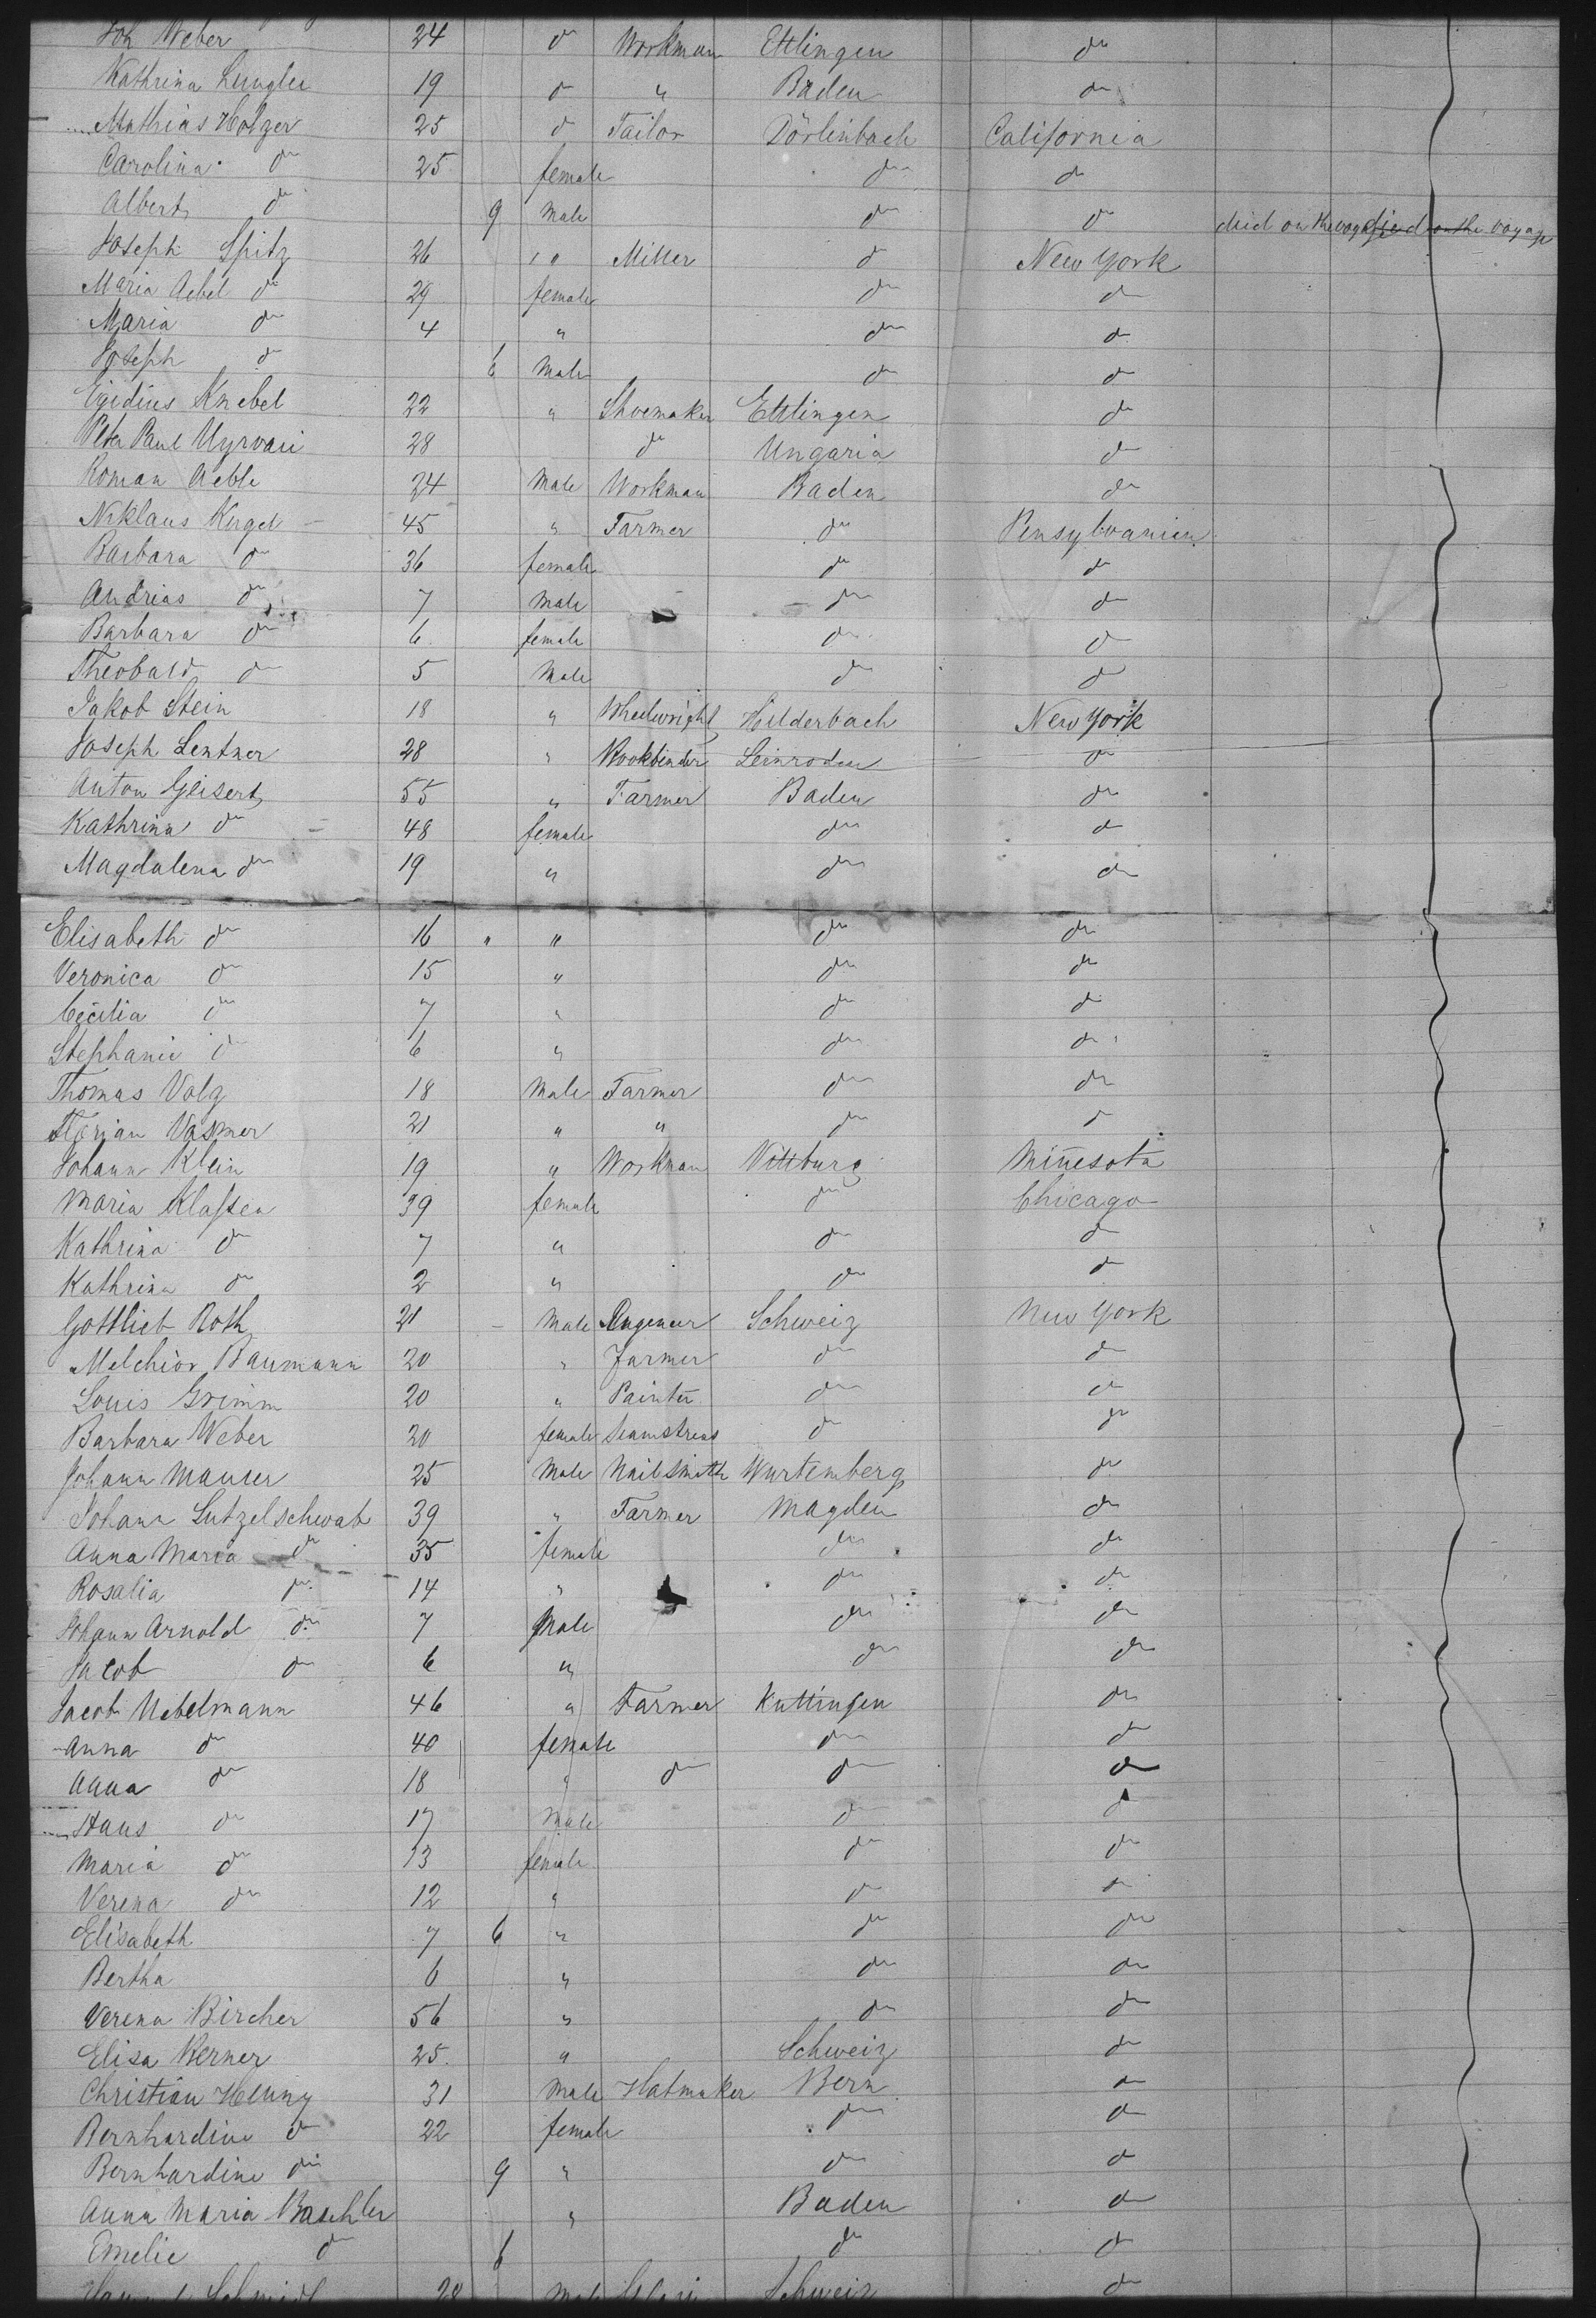 Joh Weber 24 do Workman Ettlingen do
Kathrina 19 do " Baden do
Mathias Holzer 25 do Tailor Dörlinbach California
Carolina do 25 female do do
Albert do 9 Male do do died on the voyage died on the voyage
Joseph Spitz 26 " Miller do New York
Maria Aebel do 29 female do do
Maria do 4 " do do
Joseph do 6 Male do do
Egidius Knebel 22 " Shoemaker Ettlingen do
Peter Paul Uyrvari 28 do Ungaria do
Roman Aeble 24 Male Workman Baden do
Niklaus Kugel 45 " Farmer do Pensylvanien
Barbara do 36 female do do
Andrias do 7 Male do do
Barbara do 6 female do do
Theobald do 5 Male do do
Jakob Stein 18 " Wheelwright Hilderbach New York
Joseph Lentner 28 " Bookbinder Leinroden do
Anton Geisert 55 " Farmer Baden do
Kathrina do 48 female do do
Magdalena do 19 " do do
Elisabeth do 16 " " do do
Veronica do 15 " do do
Cecilia do 7 " do do
Stephanie do 6 " do do
Thomas Volz 18 Male Farmer do do
Florian Vasmer 21 " " do do
Johann Klein 19 " Workman Vittburg Minesota
Maria Klassen 39 female do Chicago
Kathrina do 7 " do do
Kathrina do 2 " do do
Gottlieb Roth 21 Male Engeneer Schweiz New York
Melchior Baumann 20 " Farmer do do
Louis Grimm 20 " Painter do do
Barbara Weber 20 female Seamstress do do
Johann Maurer 25 Male Nailsmith Wurtemberg do
Johann Lutzelschwab 39 " Farmer Magden do
Anna Maria do 35 female do do
Rosalia do 14 " do do
Johann Arnold do 7 Male do do
Jacob do 6 " do do
Jacob Nebelmann 46 " Farmer Kuttingen do
Anna do 40 female do do
Anna do 18 " do do do
Hans do 17 Male do do
Maria do 13 female do do
Verena do 12 " do do
Elisabeth 7 6 " do do
Bertha 6 " do do
Verena Bircher 56 " do do
Elisa Kerner 25 " Schweiz do
Christian Henny 31 Male Hatmaker Bern do
Bernhardine do 22 female do do
Bernhardine do 9 " do do
Anna Maria Baschler " Baden do
Emelie do 6 do do
Schmidt 28 Male Schweiz do